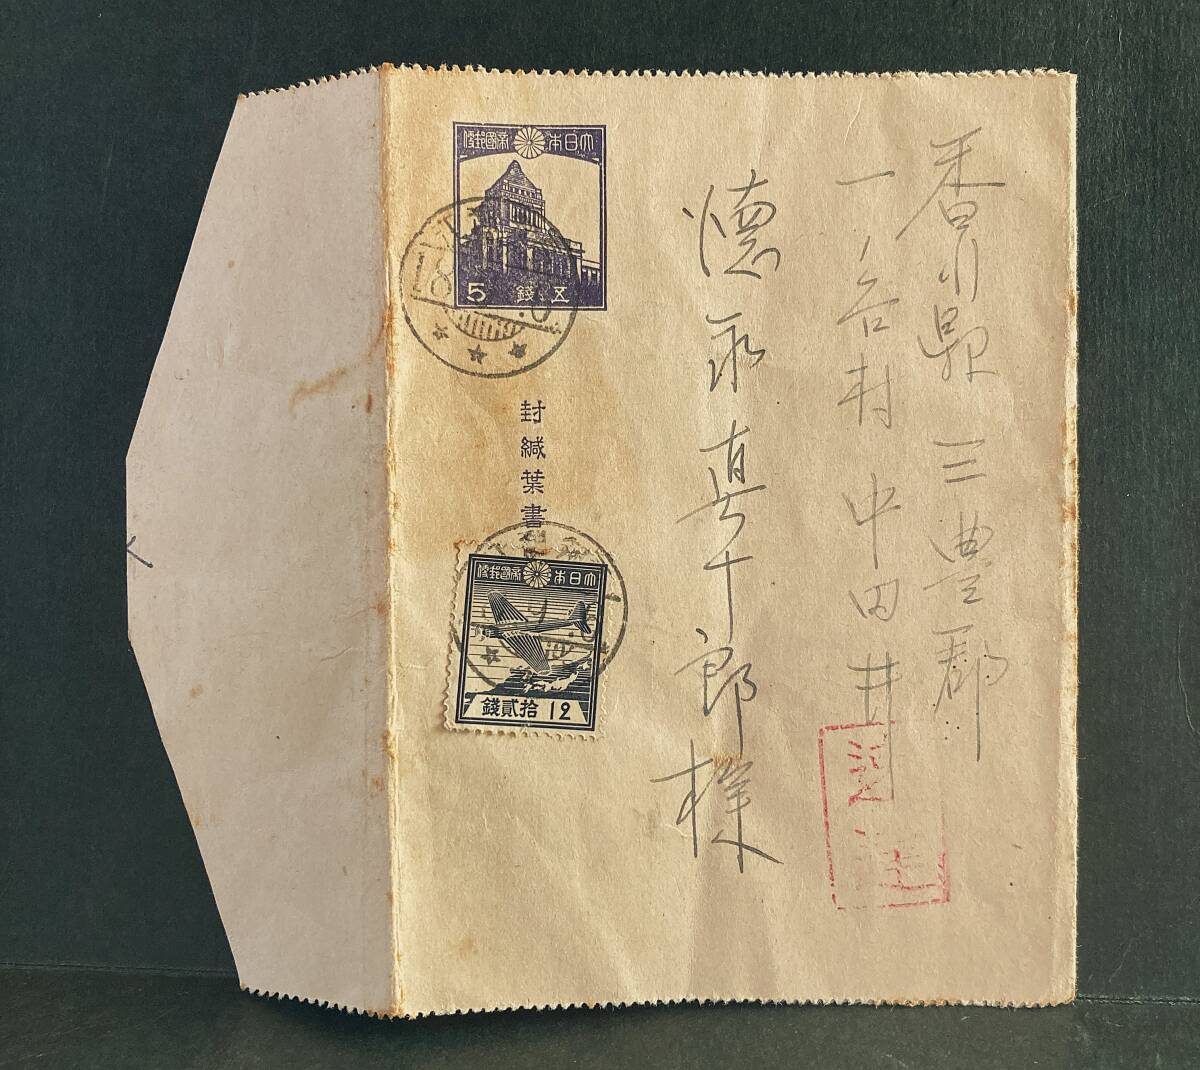 香川県三豊郡
一ノ谷村中田井
德永真十郎様
大日本帝國郵便
5 錢五
封緘葉書
大日本帝國郵便
錢貳拾 12